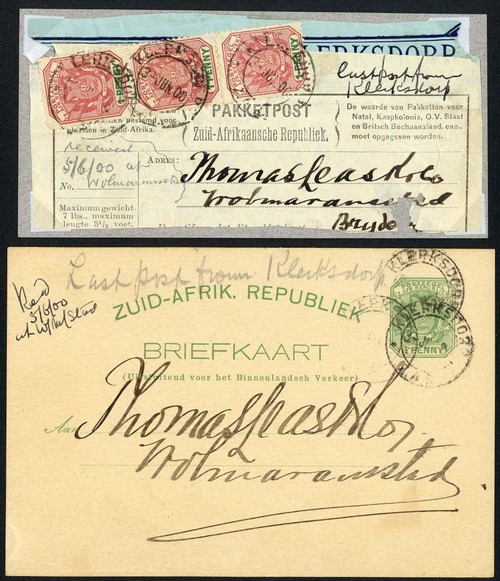 KLERKSDORP
Last post from
Klerksdorp
PAKKETPOST
Zuid-Afrikaansche Republiek.
De waarde van Pakketten voor
Natal, Kaapkolonie, O.V. Staat
en Britsch Bechuanaland, enz.,
moet opgegeven worden.
plaatsen in Zuid-Afrika.
received
5/6/00 at
Wolmaransstad
ADRES:
No.
Thomas Leask & Co
Wolmaransstad
Maximumgewicht
7 lbs., maximum
lengte 3½ voet.
Last post from Klerksdorp
Recd
5/6/00
at W/M/Stad
ZUID-AFRIK. REPUBLIEK
BRIEFKAART
(Uitsluitend voor het Binnenlandsch Verkeer)
KLERKSDORP
PENNY
Aan
Thomas Leask & Co.
Wolmaransstad